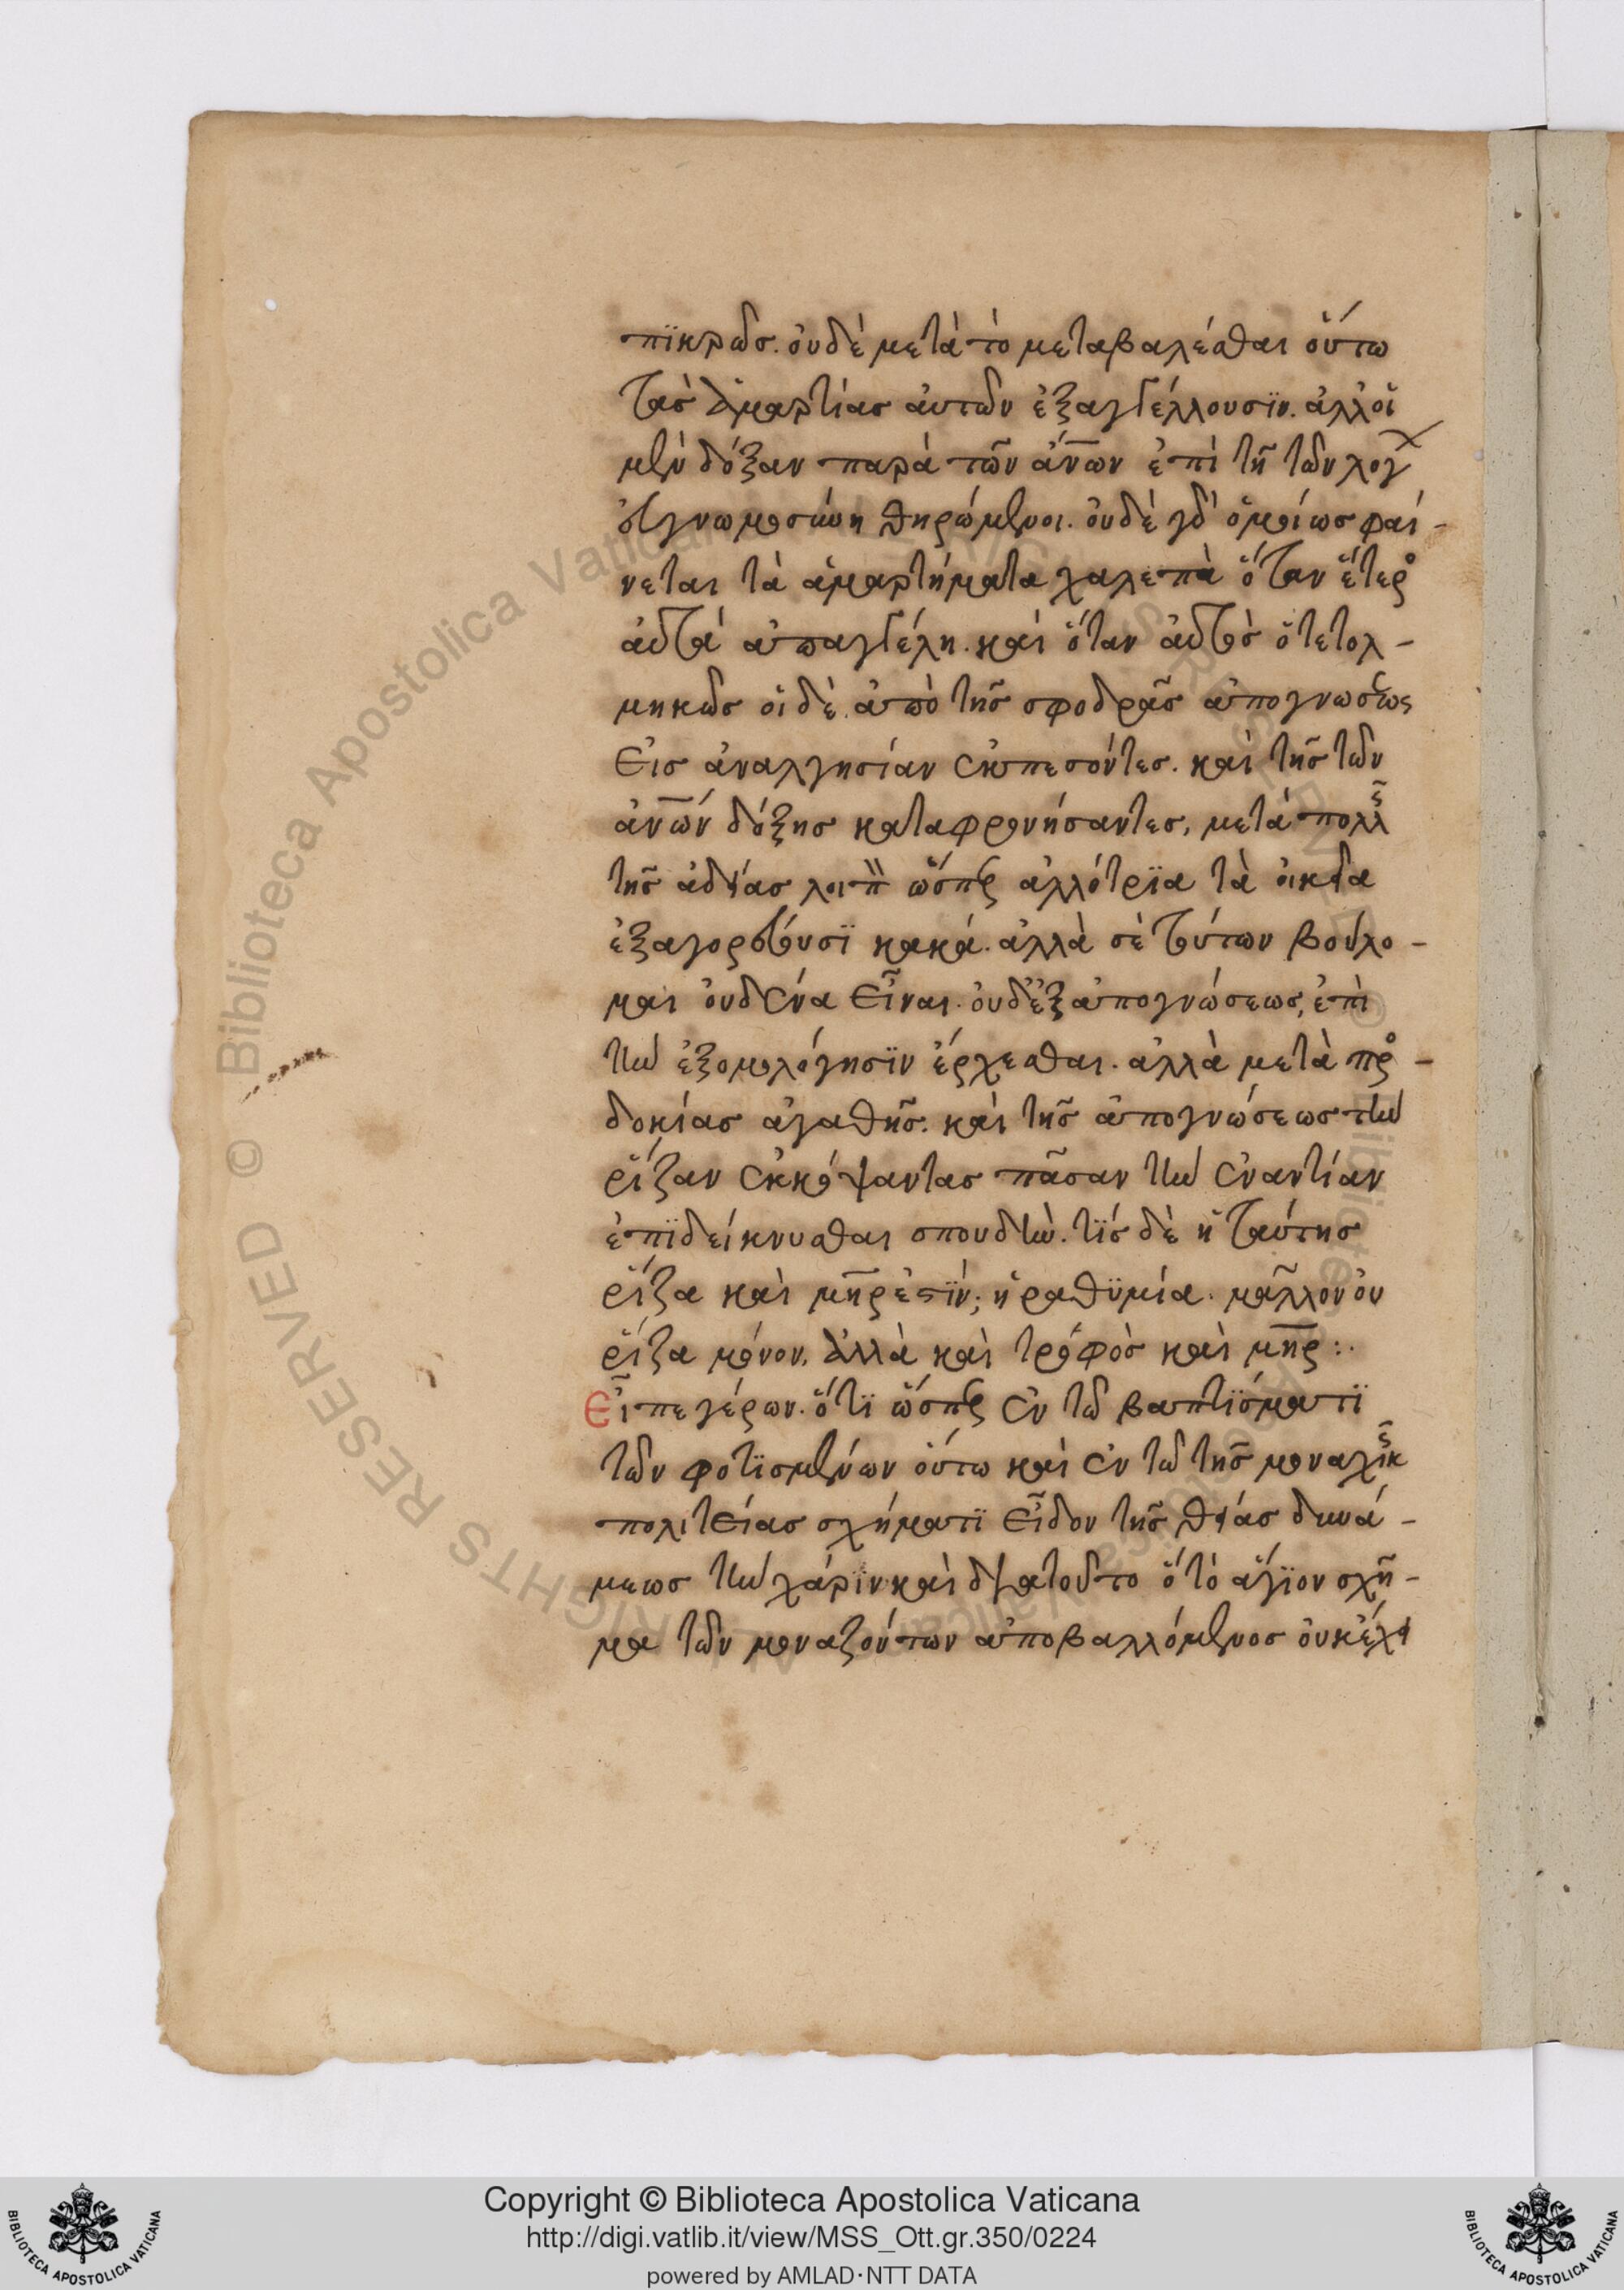 πϊκρῶσ. οὐδὲ μετὰ τὸ μεταβαλέσθαι οὕτω
τὰσ ἁμαρτίασ ἀυτῶν ἐξαγγέλλουσϊν. ἀλλ' οἱ
μὲν δόξαν παρὰ τῶν ἀνων ἐπὶ τῆ τῶν λογ
εὐγνωμοσύνη θηρώμενοι. ὀυδὲ γὰρ ὁμοίωσ φαί-
νεται τὰ ἁμαρτήματα χαλεπὰ ὅταν ἕτερο
ἀυτὰ ἀπαγγέλη. καὶ ὅταν ἀυτὸσ ὁ τετολ-
μηκὼσ οἱ δὲ ἀπὸ τῆσ σφοδρᾶσ ἀπογνώσεως
εἰσ ἀναλγησίαν ἐκπεσόντεσ. καὶ τῆσ τῶν
ἀνων δόξησ καταφρονήσαντεσ, μετὰ πολλῆς
τῆσ ἀδείασ λοιπ ὥσπερ ἀλλότρϊα τὰ οἰκεῖα
ἐξαγορεύουσϊ κακά. ἀλλὰ σὲ τούτων βούλο-
μαι ὀυδένα εἶναι. ὀυδ' ἐξ ἀπογνώσεωσ, ἐπὶ
τὴν ἐξομολόγησϊν ἔρχεσθαι. ἀλλὰ μετὰ προ-
δοκίασ ἀγαθῆσ. καὶ τῆσ ἀπογνώσεωσ τὴν
ῥίζαν ἐκκόψαντασ πᾶσαν τὴν ἐναντίαν
ἐπϊδείκνυσθαι σπουδὴν. τίσ δὲ ἡ ταύτησ
ῥίζα καὶ μηρ ἐστϊν; ἡ ραθϋμία. μᾶλλον ὀυ
ῥίζα μόνον, ἀλλὰ καὶ τρόφὸσ καὶ μηρ:.
Εἶπε γέρων. ὅτϊ ὥσπερ ἐν τῶ βαπτϊσματϊ
τῶν φοτϊσμένων ὁύτω καὶ ἐν τῶ τῆσ μοναχικῆς
πολιτείασ σχήματϊ εἶδον τῆσ θείασ δυνά-
μεωσ τὴν χάρϊν καὶ διατοῦτο ὁ τὸ ἅγϊον σχῆ-
μα τῶν μοναζόντων ἀποβαλλόμενοσ ὀυκ ἔχει
Copyright © Biblioteca Apostolica Vaticana
http://digi.vatlib.it/view/MSS_Ott.gr.350/0224
powered by AMLAD·NTT DATA